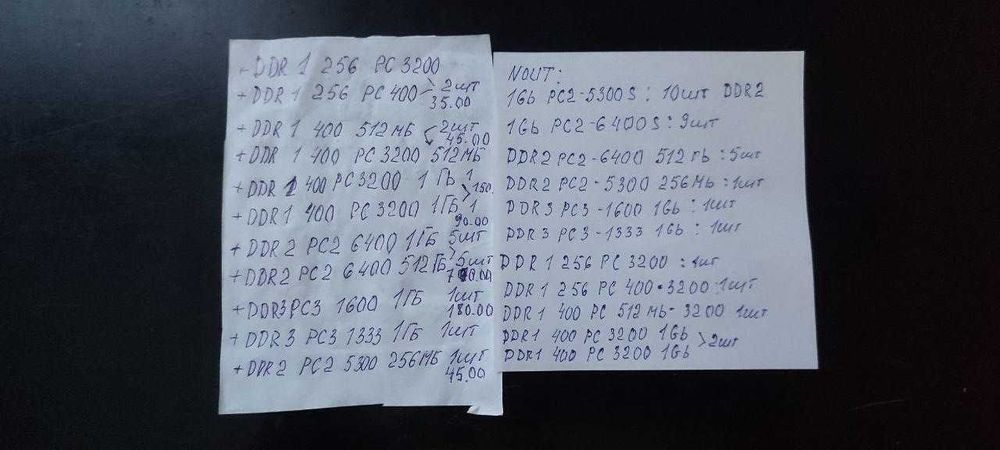 + DDR 1 256 PC 3200
+ DDR 1 256 PC 400 2шт
35.00
+ DDR 1 400 512 МБ 2шт
45.00
+ DDR 1 400 PC 3200 512 МБ
+ DDR 1 400 PC 3200 1 ГБ 1
150.
+ DDR 1 400 PC 3200 1 ГБ 1
90.00
+ DDR 2 PC2 6400 1 ГБ 5шт
+ DDR2 PC2 6400 512 ГБ 5шт
+ DDR3 PC3 1600 1 ГБ 1шт
180.00
+ DDR 3 PC3 1333 1 ГБ 1шт
+ DDR2 PC2 5300 256 МБ 1шт
45.00
NOUT:
1Gb PC2-5300S: 10шт DDR2
1Gb PC2-6400S: 9шт
DDR2 PC2-6400 512 Гb: 5шт
DDR2 PC2-5300 256 Mb: 1шт
DDR3 PC3-1600 1Gb: 1шт
DDR3 PC3-1333 1Gb: 1шт
DDR 1 256 PC 3200: шт
DDR 1 256 PC 400•3200: 1шт
DDR 1 400 PC 512 Mb-3200 1шт
DDR1 400 PC 3200 1Gb
2шт
DDR1 400 PC 3200 1Gb